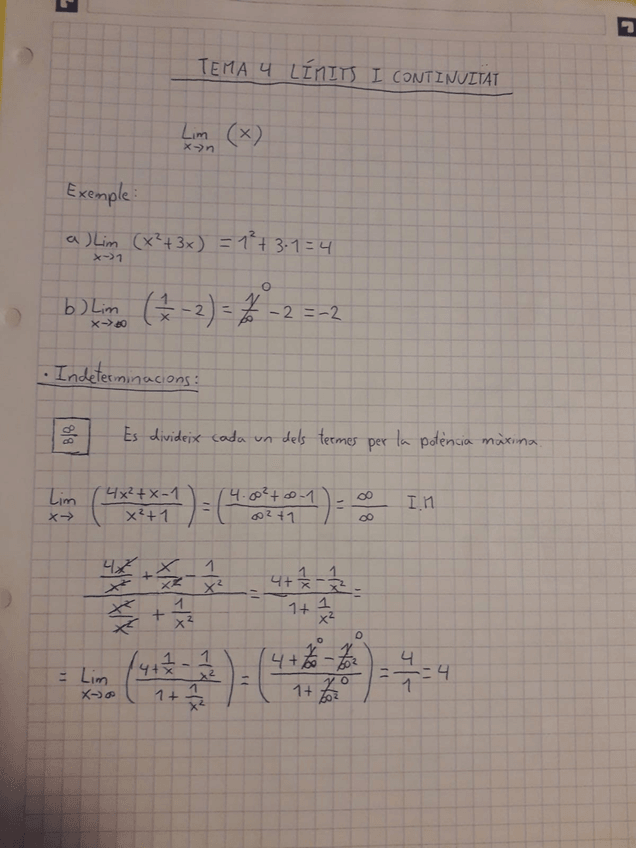 TEMA 4 LÍMITS I CONTINUITAT
Lim x→n (x)
Exemple:
a) Lim x→1 (x²+3x) = 1²+3·1=4
b) Lim x→∞ (1/x - 2) = 1/∞ 0 - 2 = -2
· Indeterminacions:
∞/∞ Es divideix cada un dels termes per la potència màxima
Lim x→ ((4x²+x-1)/(x²+1)) = ((4·∞²+∞-1)/(∞²+1)) = ∞/∞ I.N
(4x²/x² + x/x² - 1/x²)/(x²/x² + 1/x²) = (4+1/x-1/x²)/(1+1/x²) =
= Lim x→∞ ((4+1/x-1/x²)/(1+1/x²)) = ((4+1/∞ 0 - 1/∞² 0)/(1+1/∞² 0)) = 4/1 = 4